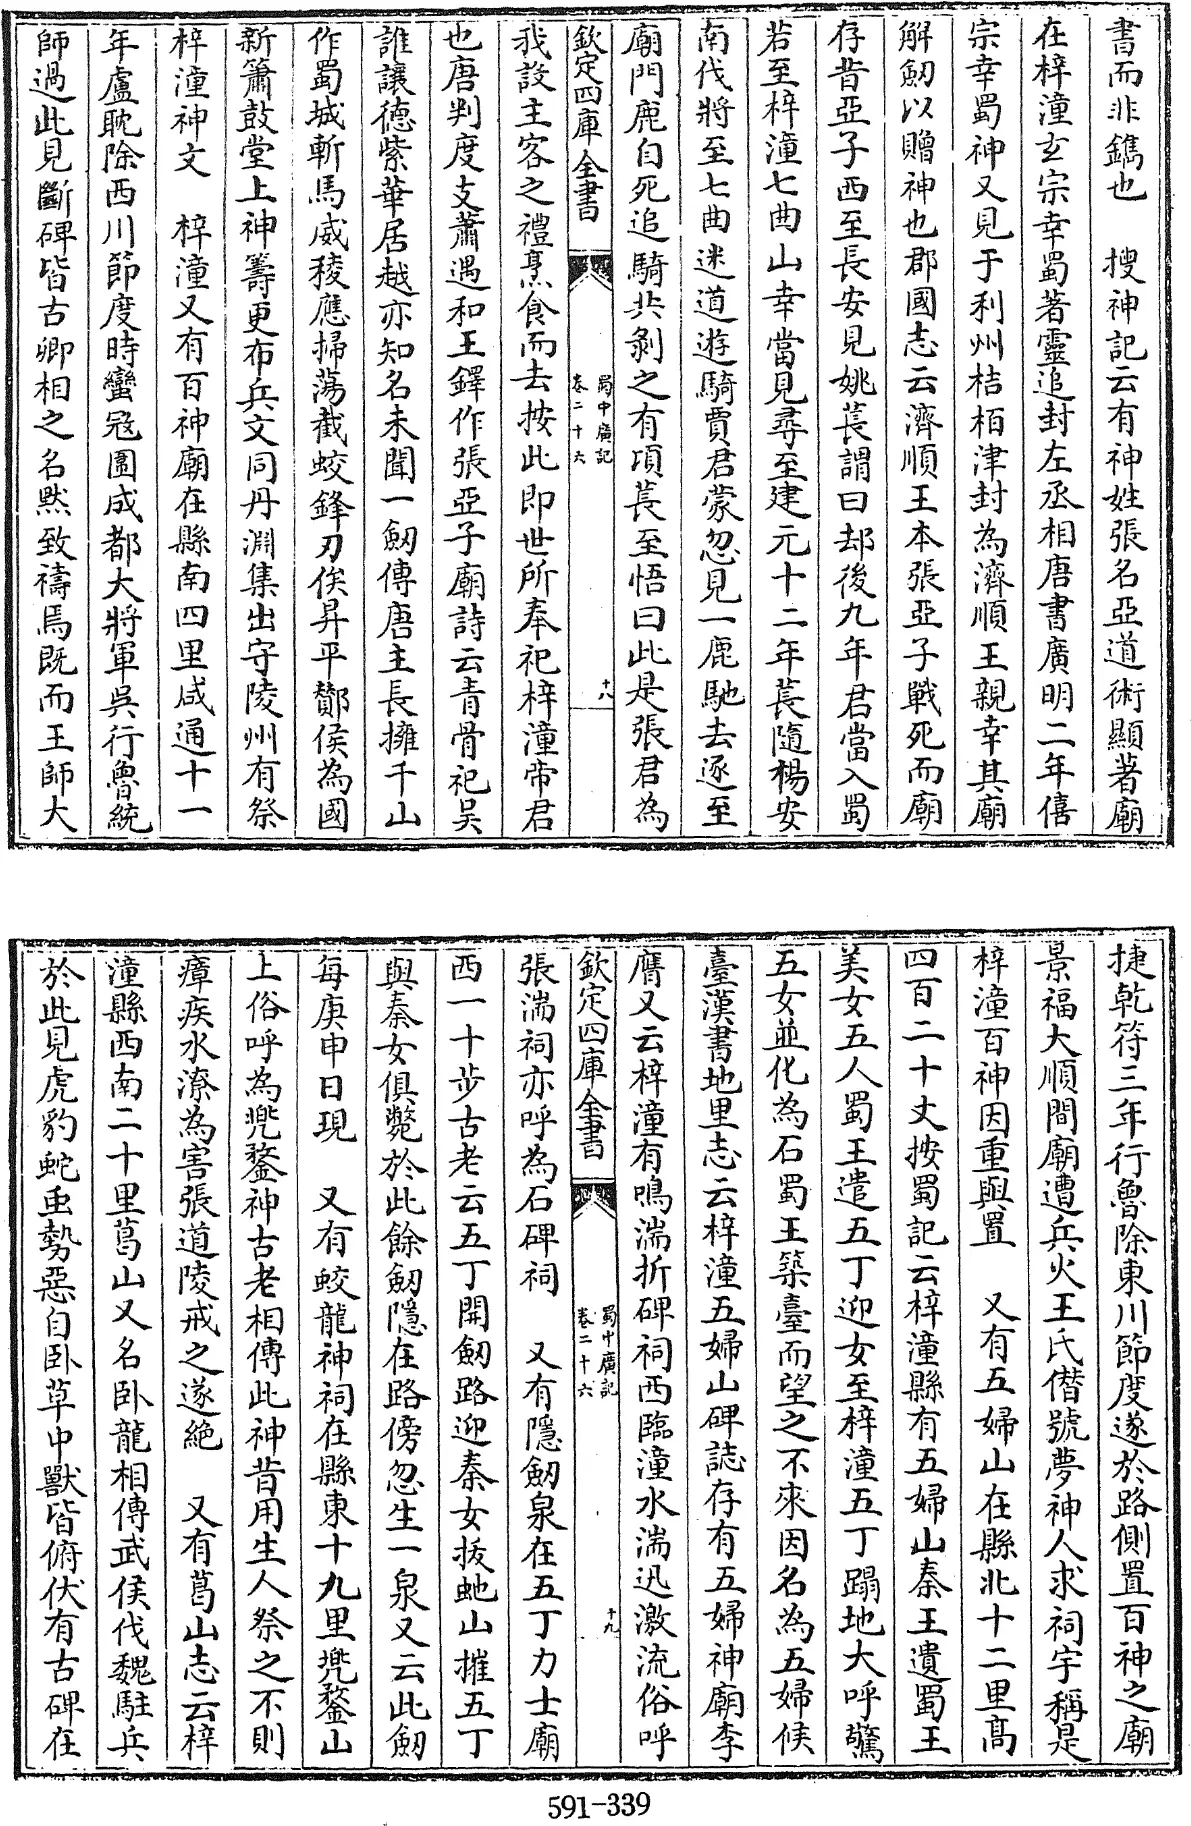 書而非鐫也　　搜神記云有神姓張名亞道術顯著廟
在梓潼玄宗幸蜀著靈追封左丞相唐書廣明二年僖
宗幸蜀神又見于利州桔栢津封為濟順王親幸其廟
解劒以贈神也郡國志云濟順王本張亞子戰死而廟
存昔亞子西至長安見姚萇謂曰却後九年君當入蜀
若至梓潼七曲山幸當見尋至建元十二年萇隨楊安
南伐將至七曲迷道遊騎賈君蒙忽見一鹿馳去逐至
廟門鹿自死追騎共剝之有項萇至悟曰此是張君為
欽定四庫全書
蜀中廣記
卷二十六
十八
我設主客之禮烹食而去按此即世所奉祀梓潼帝君
也唐判度支蕭遇和王鐸作張亞子廟詩云青骨祀吴
誰讓德紫華居越亦知名未聞一劒傳唐主長擁千山
作蜀城斬馬威稜應掃蕩截蛟鋒刃俟昇平酇侯為國
新簫鼓堂上神籌更布兵文同丹淵集出守陵州有祭
梓潼神文　梓潼又有百神廟在縣南四里咸通十一
年盧耽除西川節度時蠻冦圍成都大將軍吳行魯統
師過此見斷碑皆古卿相之名黙致禱焉既而王師大
捷乾符三年行魯除東川節度遂於路側置百神之廟
景福大順間廟遭兵火王氏僣號夢神人求祠宇稱是
梓潼百神因重興置　又有五婦山在縣北十二里髙
四百二十丈按蜀記云梓潼縣有五婦山秦王遺蜀王
美女五人蜀王遣五丁迎女至梓潼五丁蹋地大呼驚
五女並化為石蜀王築臺而望之不來因名為五婦候
臺漢書地里志云梓潼五婦山碑誌存有五婦神廟李
膺又云梓潼有鳴湍折碑祠西臨潼水湍迅激流俗呼
欽定四庫全書
蜀中廣記
卷二十六
十九
張湍祠亦呼為石碑祠　又有隱劒泉在五丁力士廟
西一十步古老云五丁開劒路迎秦女拔虵山摧五丁
與秦女俱斃於此餘劒隱在路傍忽生一泉又云此劒
每庚申日現　又有蛟龍神祠在縣東十九里兠鍪山
上俗呼為兠鍪神古老相傳此神昔用生人祭之不則
瘴疾水潦為害張道陵戒之遂絶　又有葛山志云梓
潼縣西南二十里葛山又名卧龍相傳武侯伐魏駐兵
於此見虎豹蛇虫勢惡自卧草中獸皆俯伏有古碑在
591-339